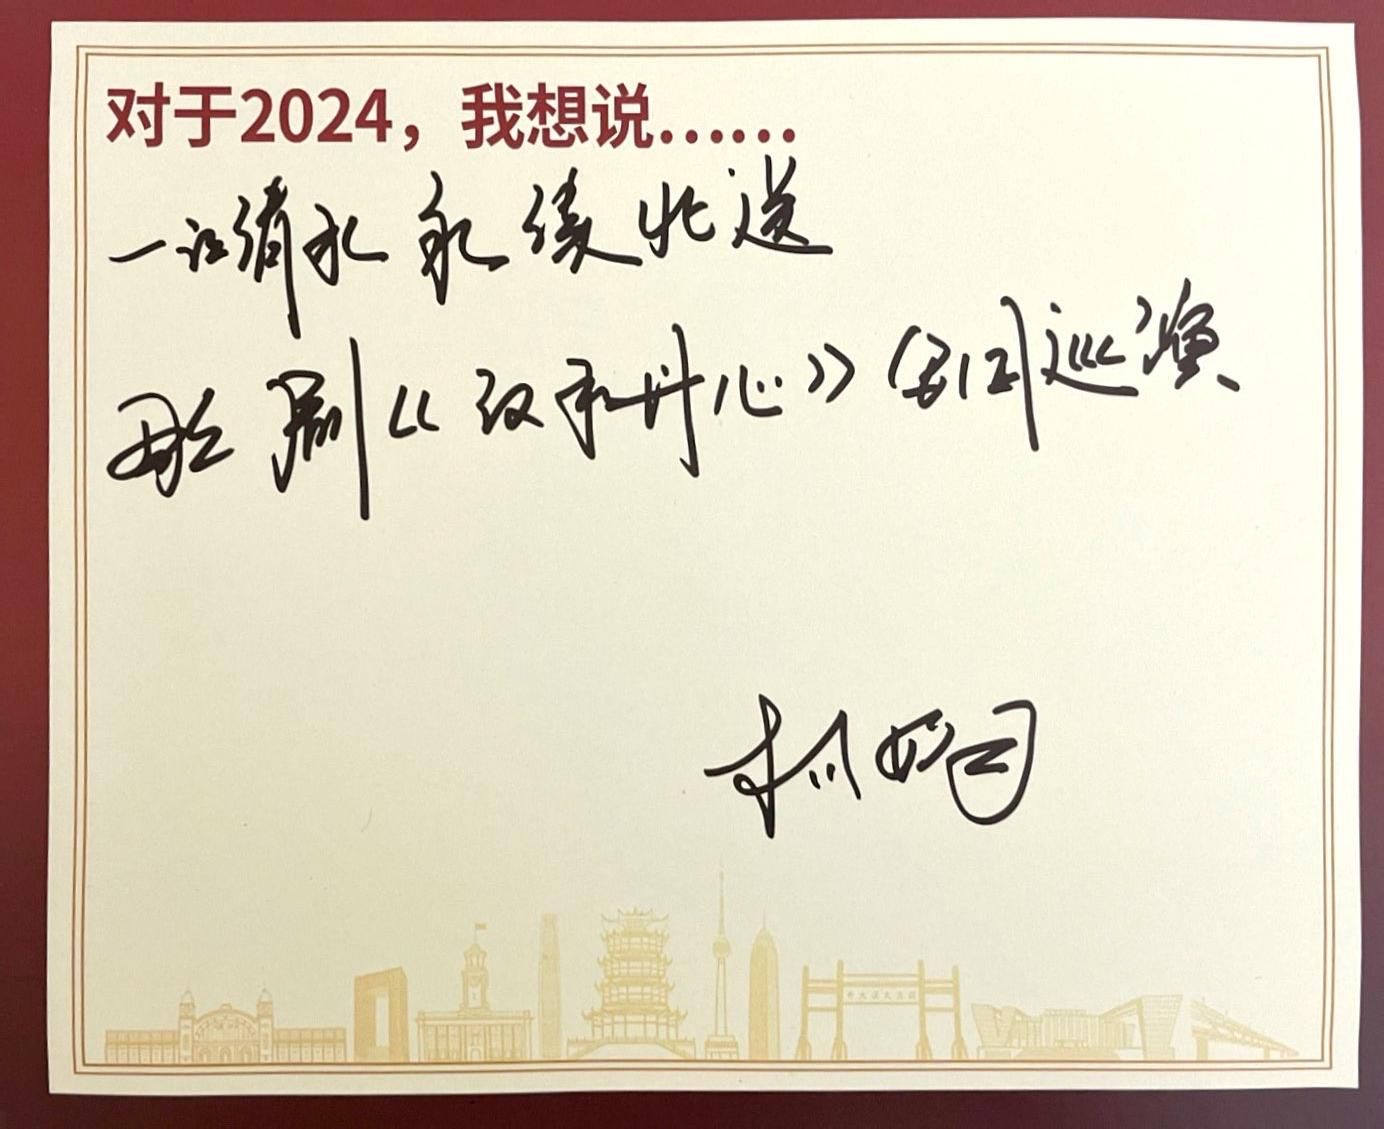 对于2024，我想说……
一江清水永续北送
歌剧《汉水丹心》全国巡演